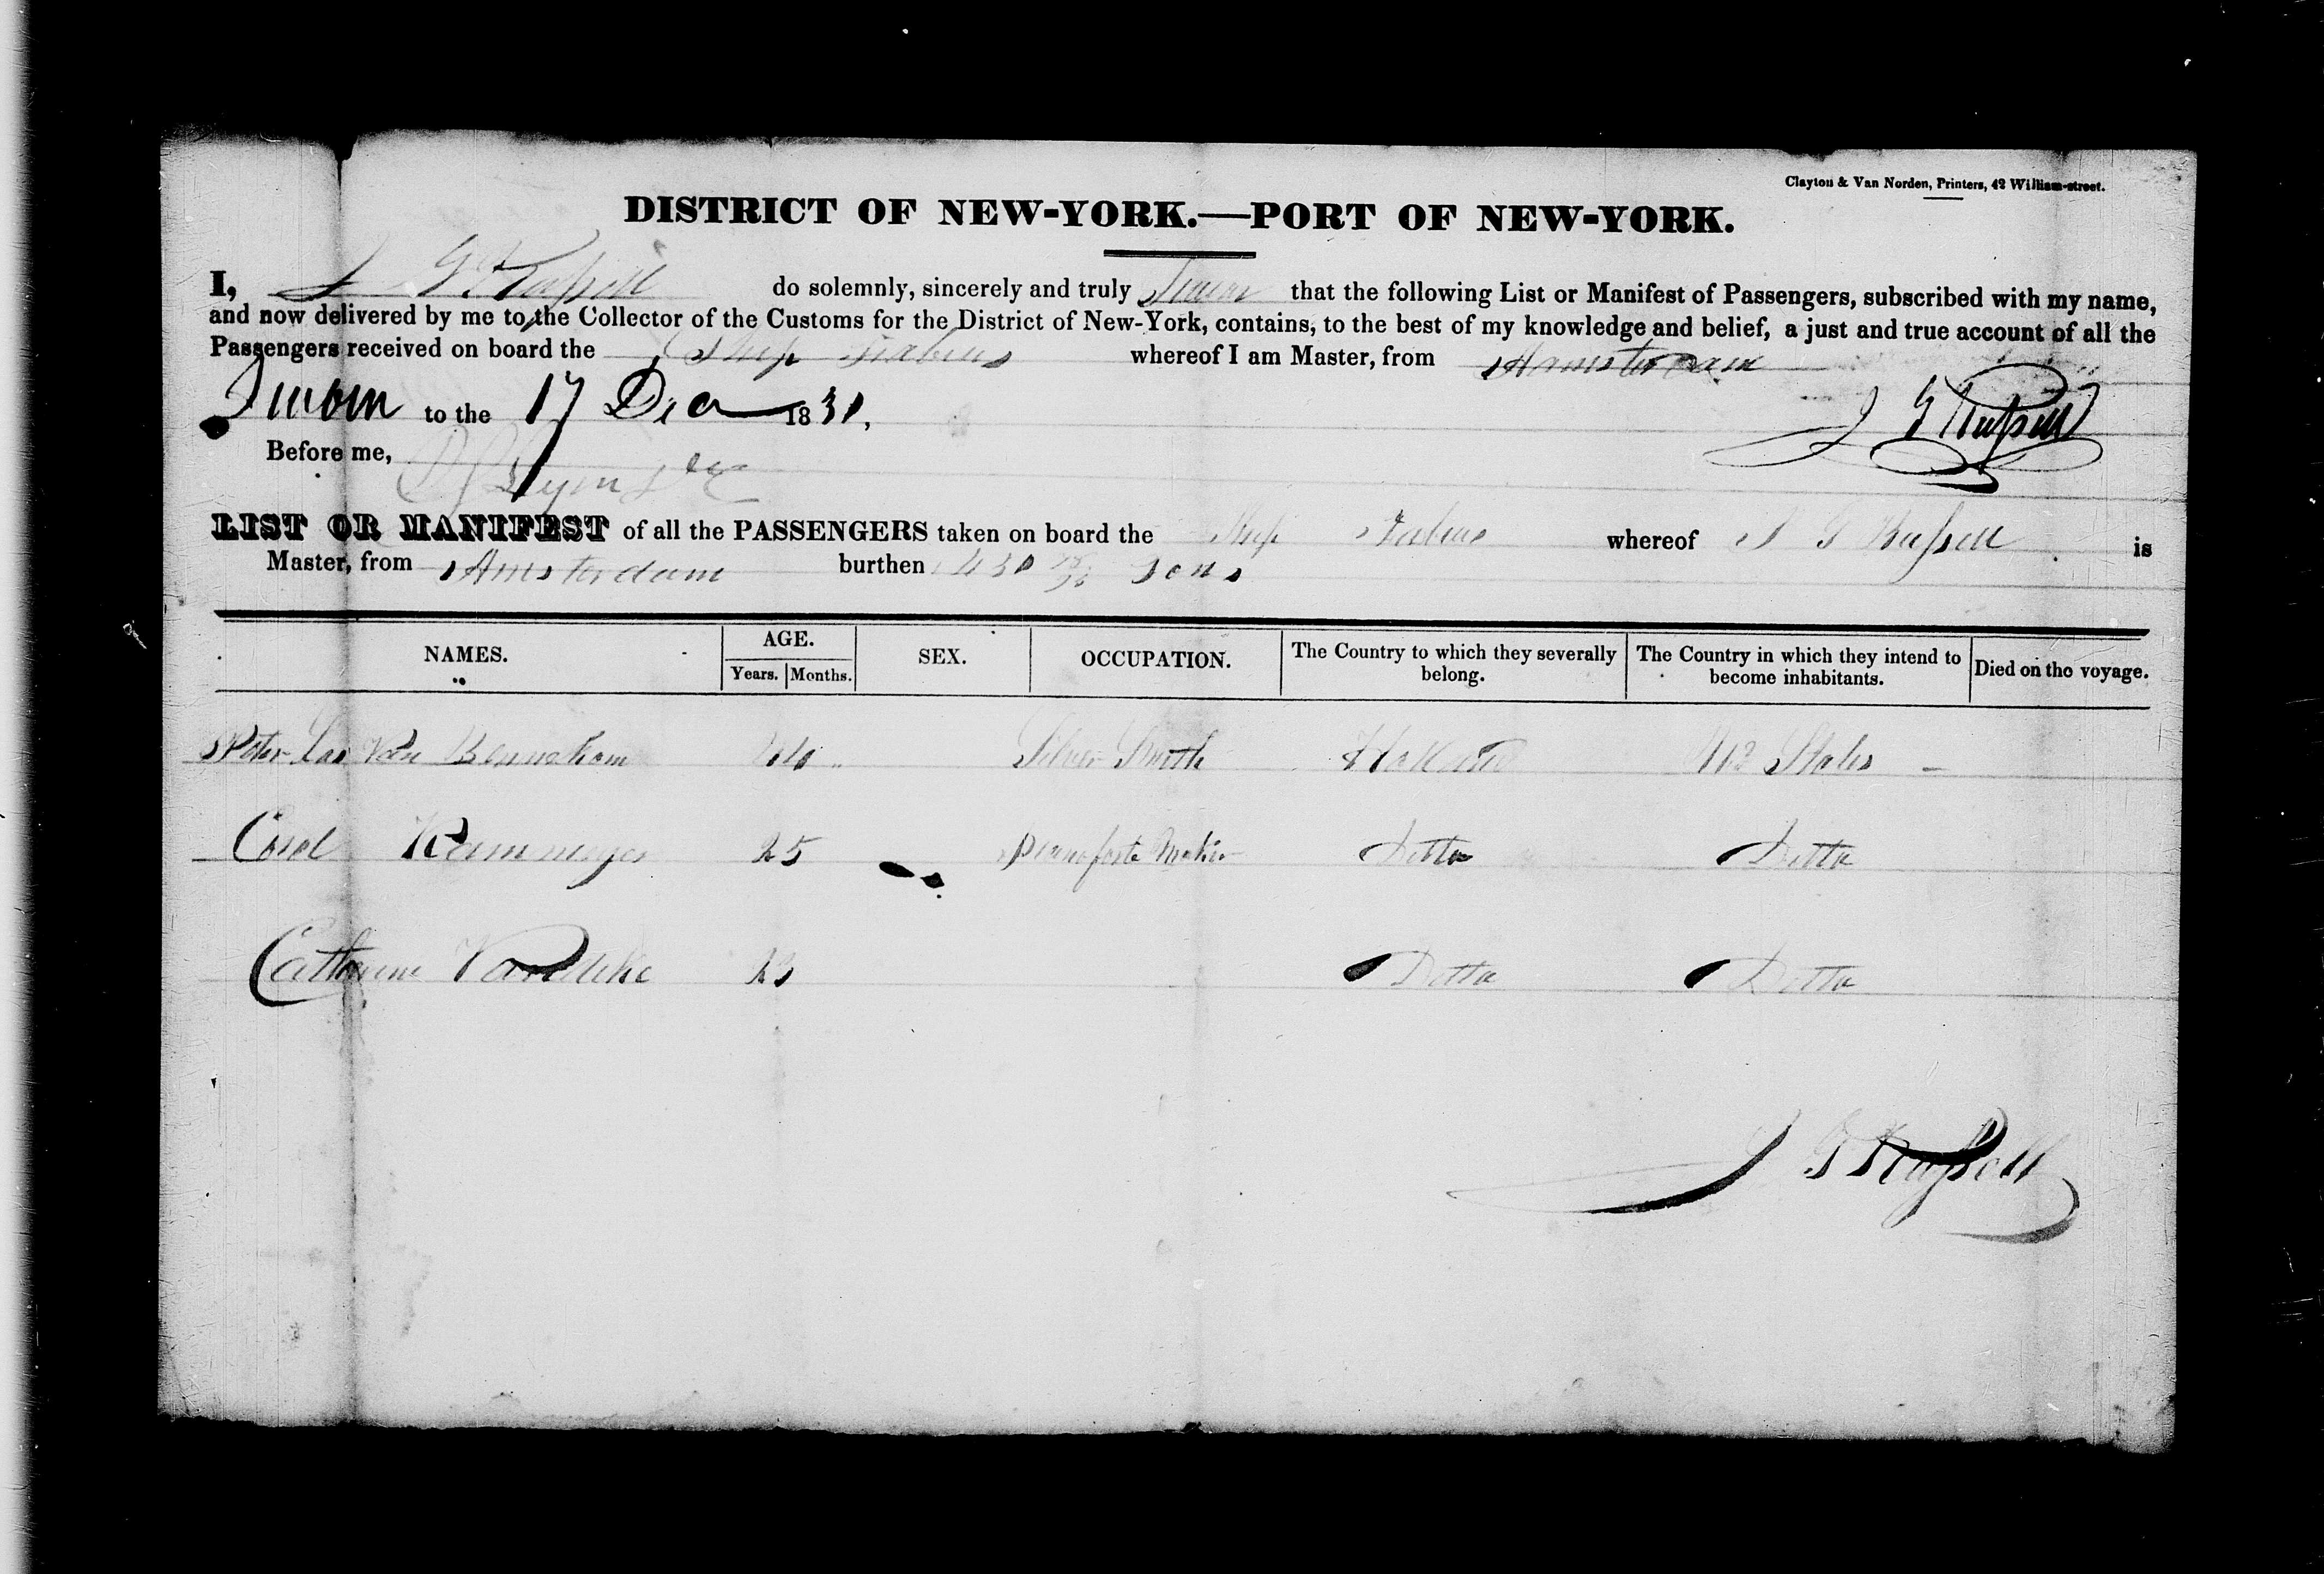 Clayton & Van Norden, Printers, 42 William-street.
DISTRICT OF NEW-YORK.—PORT OF NEW-YORK.
I, J G Russell do solemnly, sincerely and truly Swear that the following List or Manifest of Passengers, subscribed with my name,
and now delivered by me to the Collector of the Customs for the District of New-York, contains, to the best of my knowledge and belief, a just and true account of all the
Passengers received on board the Ship Fabius whereof I am Master, from Amsterdam
Sworn to the 17 Dec 1831. J G Russell
Before me,
LIST OR MANIFEST of all the PASSENGERS taken on board the Ship Fabius whereof J G Russell is
Master, from Amsterdam burthen 430 Tons
NAMES. AGE. SEX. OCCUPATION. The Country to which they severally belong. The Country in which they intend to become inhabitants. Died on the voyage.
Years. Months.
Peter Van Silver Smith Holland Ud States
25 Pianoforte Maker Ditto Ditto
Catharine Vandike Ditto Ditto
J G Russell